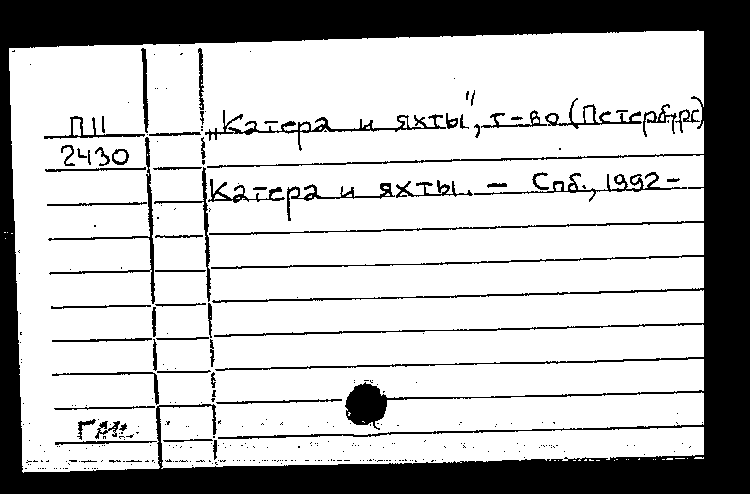 П11
2430
„Катера и яхты", т-во (Петербург)
Катера и яхты. — Спб., 1992 –